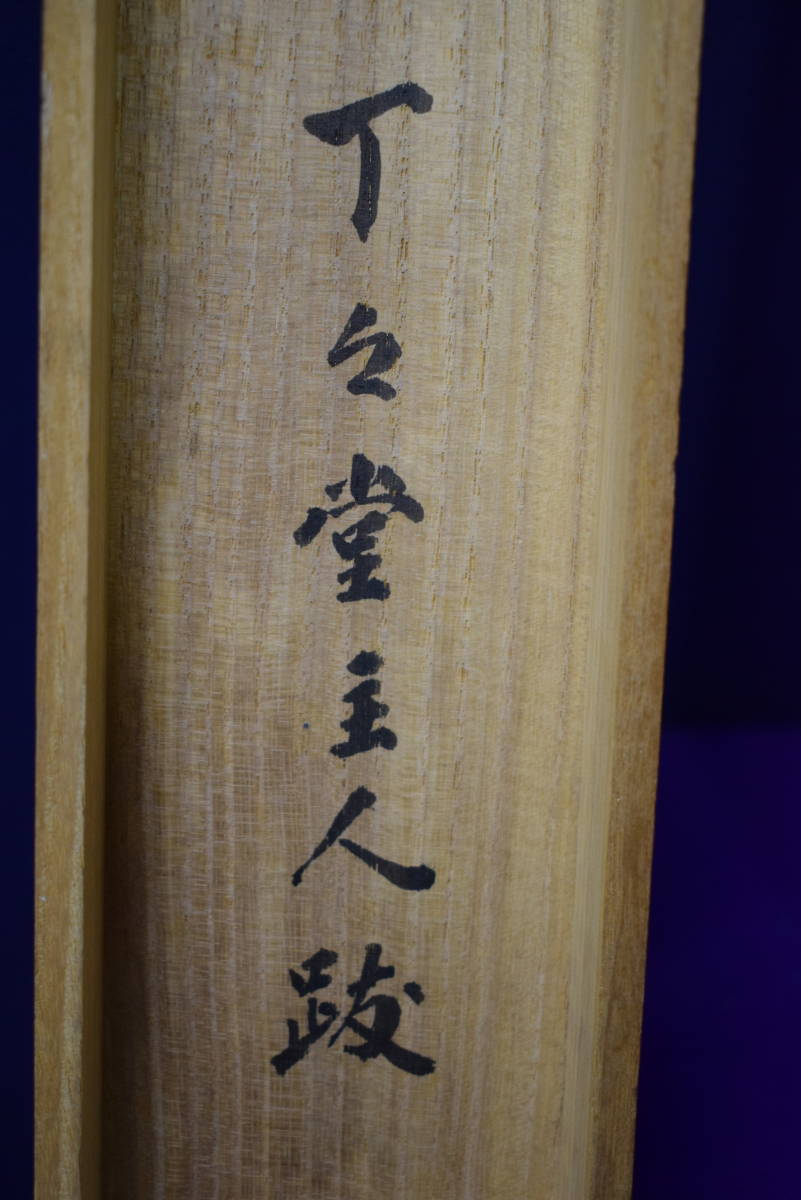 丁々堂主人跋